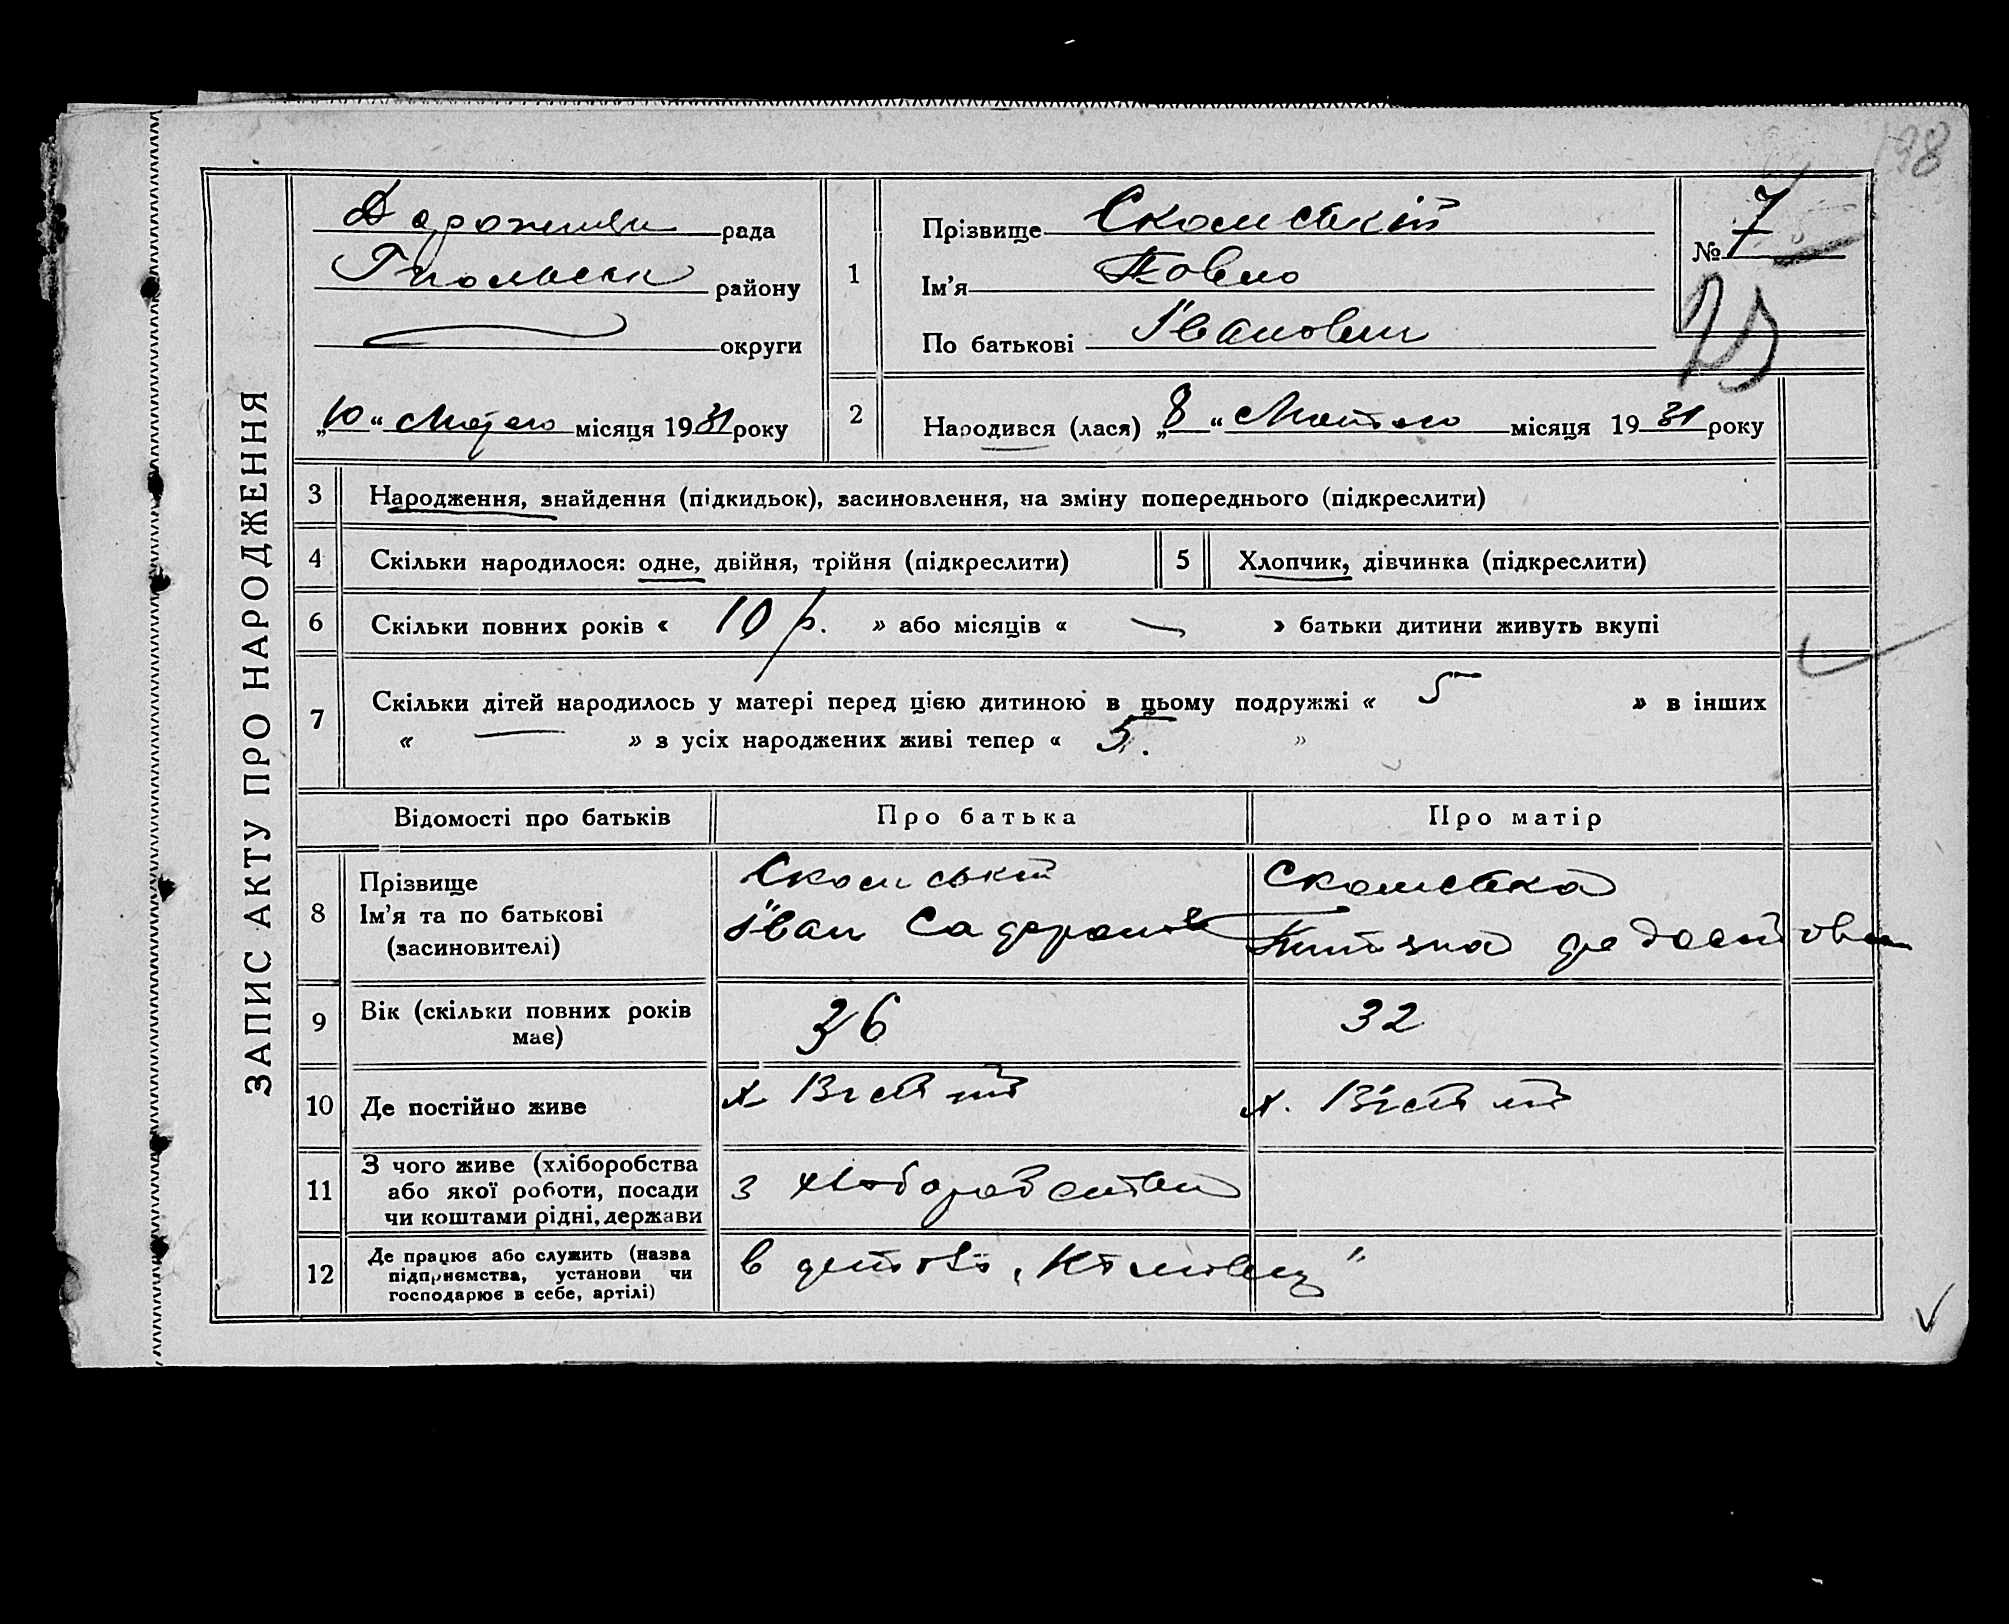 198
ЗАПИС АКТУ ПРО НАРОДЖЕННЯ
рада
району
округи
„10“ Лютого місяця 1931 року
1
Прізвище
Ім'я Павло
По батькові Іванович
№ 7
25
2
Народився (лася) „8“ Лютого місяця 1931 року
3 Народження, знайдення (підкидьок), засиновлення, на зміну попереднього (підкреслити)
4 Скільки народилося: одне, двійня, трійня (підкреслити)
5 Хлопчик, дівчинка (підкреслити)
6 Скільки повних років « 10 р. » або місяців « — » батьки дитини живуть вкупі
7 Скільки дітей народилось у матері перед цією дитиною в цьому подружжі « 5 » в інших
« — » з усіх народжених живі тепер « 5. »
Відомості про батьків
Про батька
Про матір
8
Прізвище
Ім'я та по батькові
(засиновителі)
Іван
9
Вік (скільки повних років
має)
36
32
10 Де постійно живе
х.
х.
11
З чого живе (хліборобства
або якої роботи, посади
чи коштами рідні, держави
з хлоборобства
12
Де працює або служить (назва
підприємства, установи чи
господарює в себе, артілі)
в